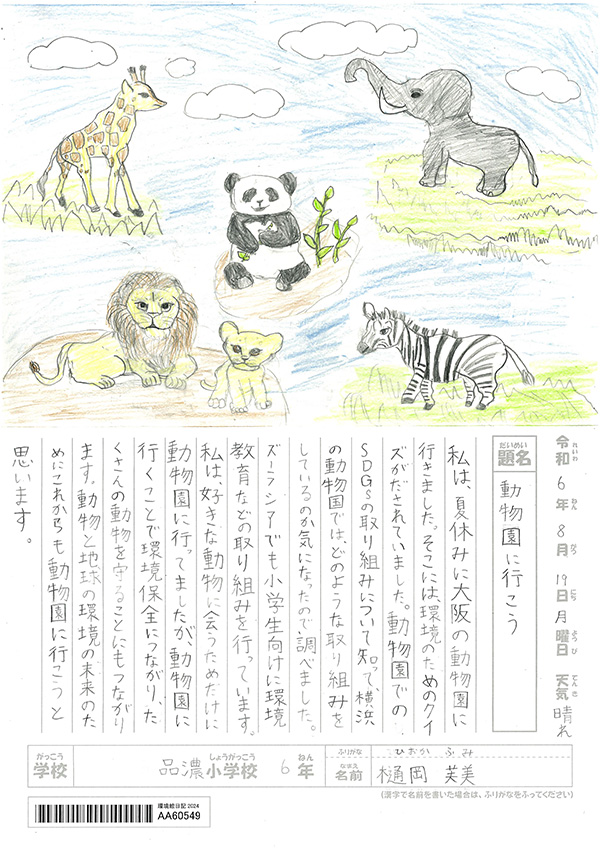 令和6年8月19日月曜日 天気 晴れ
れいわ ねん がつ にち ようび てんき
だいめい
題名 動物園に行こう
私は、夏休みに大阪の動物園に
行きました。そこには、環境のためのクイ
ズがだされていました。動物園での
SDGsの取り組みについて知って、横浜
の動物園では、どのような取り組みを
しているのか気になったので調べました。
ズーラシアでも小学生向けに環境
教育などの取り組みを行っています。
私は、好きな動物に会うためだけに
動物園に行ってましたが、動物園に
行くことで環境保全につながり、た
くさんの動物を守ることにもつながり
ます。動物と地球の環境の未来のた
めにこれからも動物園に行こうと
思います。
がっこう しょうがっこう ねん ふりがな ひおか ふみ
学校 品濃小学校 6年 なまえ 名前 樋岡 芙美
(漢字で名前を書いた場合は、ふりがなをふってください)
環境絵日記 2024
AA60549